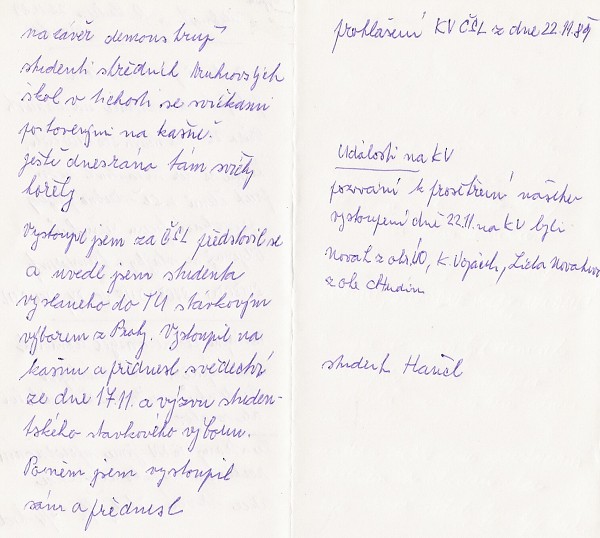 na závěr demonstrují
studenti středních Trutnovských
škol v tichosti se svíčkami
postavenými na kašně.
ještě dnes ráno tam svíčky
hořely
Vystoupil jsem za ČSL představil se
a uvedl jsem studenta
vyslaného do TU stávkovým
výborem z Prahy. Vystoupil na
kašnu a přednesl svědectví
ze dne 17.11. a výzvu studen-
tského stávkového výboru.
Po něm jsem vystoupil
sám a přednesl
prohlášení KV ČSL z dne 22.11.89
Události na KV
pozvaní k prošetření našeho
vystoupení dne 22.11. na KV byli
Novák z okr. K. Vojáček, Lída Nováková
z ole Chrudim
student Hančl